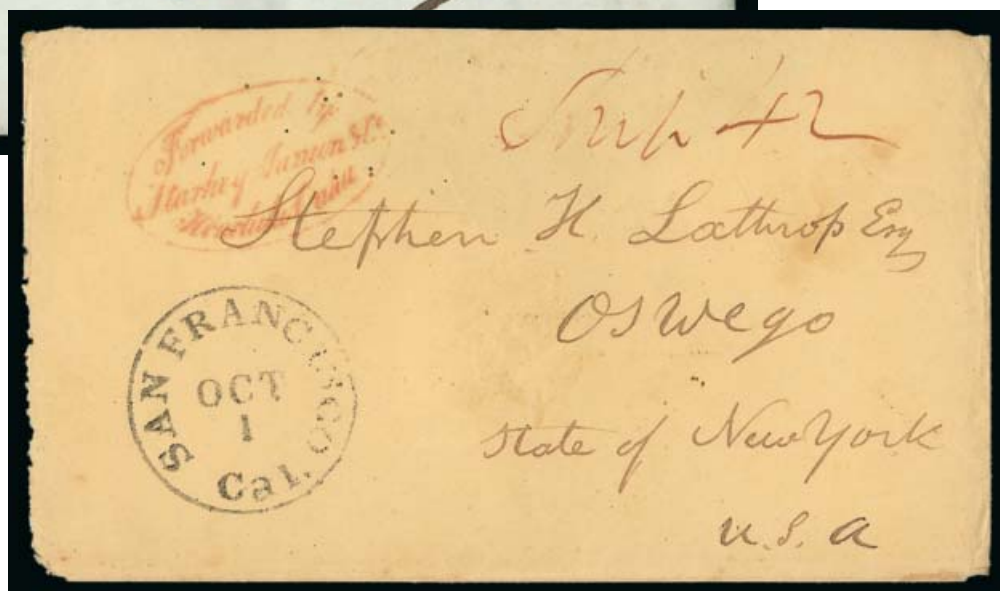 Forwarded by
Starkey Janion & Co
Honolulu Oahu
Ship 42
Stephen H. Lathrop Esq
Oswego
State of New York
U.S.A
SAN FRANCISCO
OCT
1
Cal.